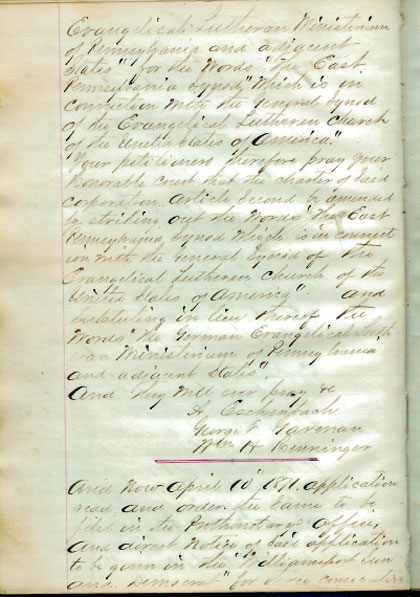 Evangelical Lutheran Ministerium
of Pennsylvania and adjacent
States" for the Words "The East
Pennsylvania Synod," Which is in
connection With the General Synod
of the Evangelical Lutheran Church
of the United States of America."
Your petitioners therefore pray your
Honorable Court that the charter of Said
coporation. Article Second be amended
by striking out the Words "The East
Pennsylvania Synod Which is in connect
ion with the General Synod of the
Evangelical Lutheran Church of the
United States of America" and
substuting in lieu thereof the
Words "the German Evangelical Luth
eran Ministerium of Pennsylvania
and adjacent States."
And they Will ever pray &c
A. Eschenbach
George F. Garman
Wm H Renninger
And Now April 10" 1871. application
read and order the Same to be
filed in the Prothonotarys Office,
and direct Notice of Said application
to be given in the "Williamsport Sun
and Democrat" for three consecutive